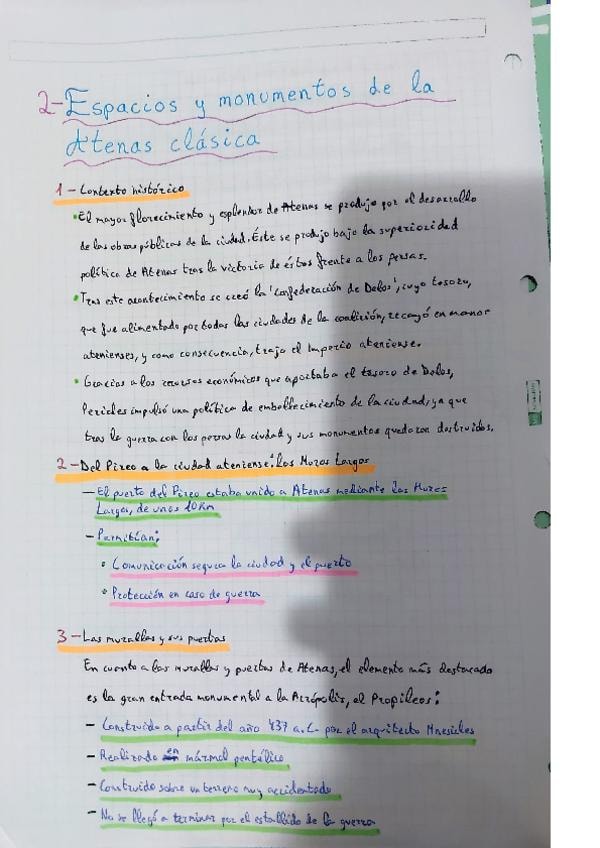 2-Espacios y monumentos de la
Atenas clásica
1 - Contexto histórico
• El mayor florecimiento y esplendor de Atenas se produjo por el desarrollo
de las obras públicas de la ciudad. Éste se produjo bajo la superioridad
política de Atenas tras la victoria de éstos frente a los persas.
• Tras este acontecimiento se creó la 'Confederación de Delos', cuyo tesoro,
que fue alimentado por todas las ciudades de la coalición, recayó en manos
atenienses, y como consecuencia, trajo el Imperio ateniense.
• Gracias a los recursos económicos que aportaba el tesoro de Delos,
Pericles impulsó una política de embellecimiento de la ciudad, ya que
tras la guerra con los persas la ciudad y sus monumentos quedaron destruidos.
2 - Del Pireo a la ciudad ateniense: los Muros Largos
- El puerto del Pireo estaba unido a Atenas mediante los Muros
Largos, de unos 10Km
- Permitían:
• Comunicación segura la ciudad y el puerto
• Protección en caso de guerra
3 - Las murallas y sus puertas
En cuanto a las murallas y puertas de Atenas, el elemento más destacado
es la gran entrada monumental a la Acrópolis, el Propileos:
- Construido a partir del año 437 a.C. por el arquitecto Mnesicles
- Realizado en mármol pentélico
- Construido sobre un terreno muy accidentado
- No se llegó a terminar por el estallido de la guerra